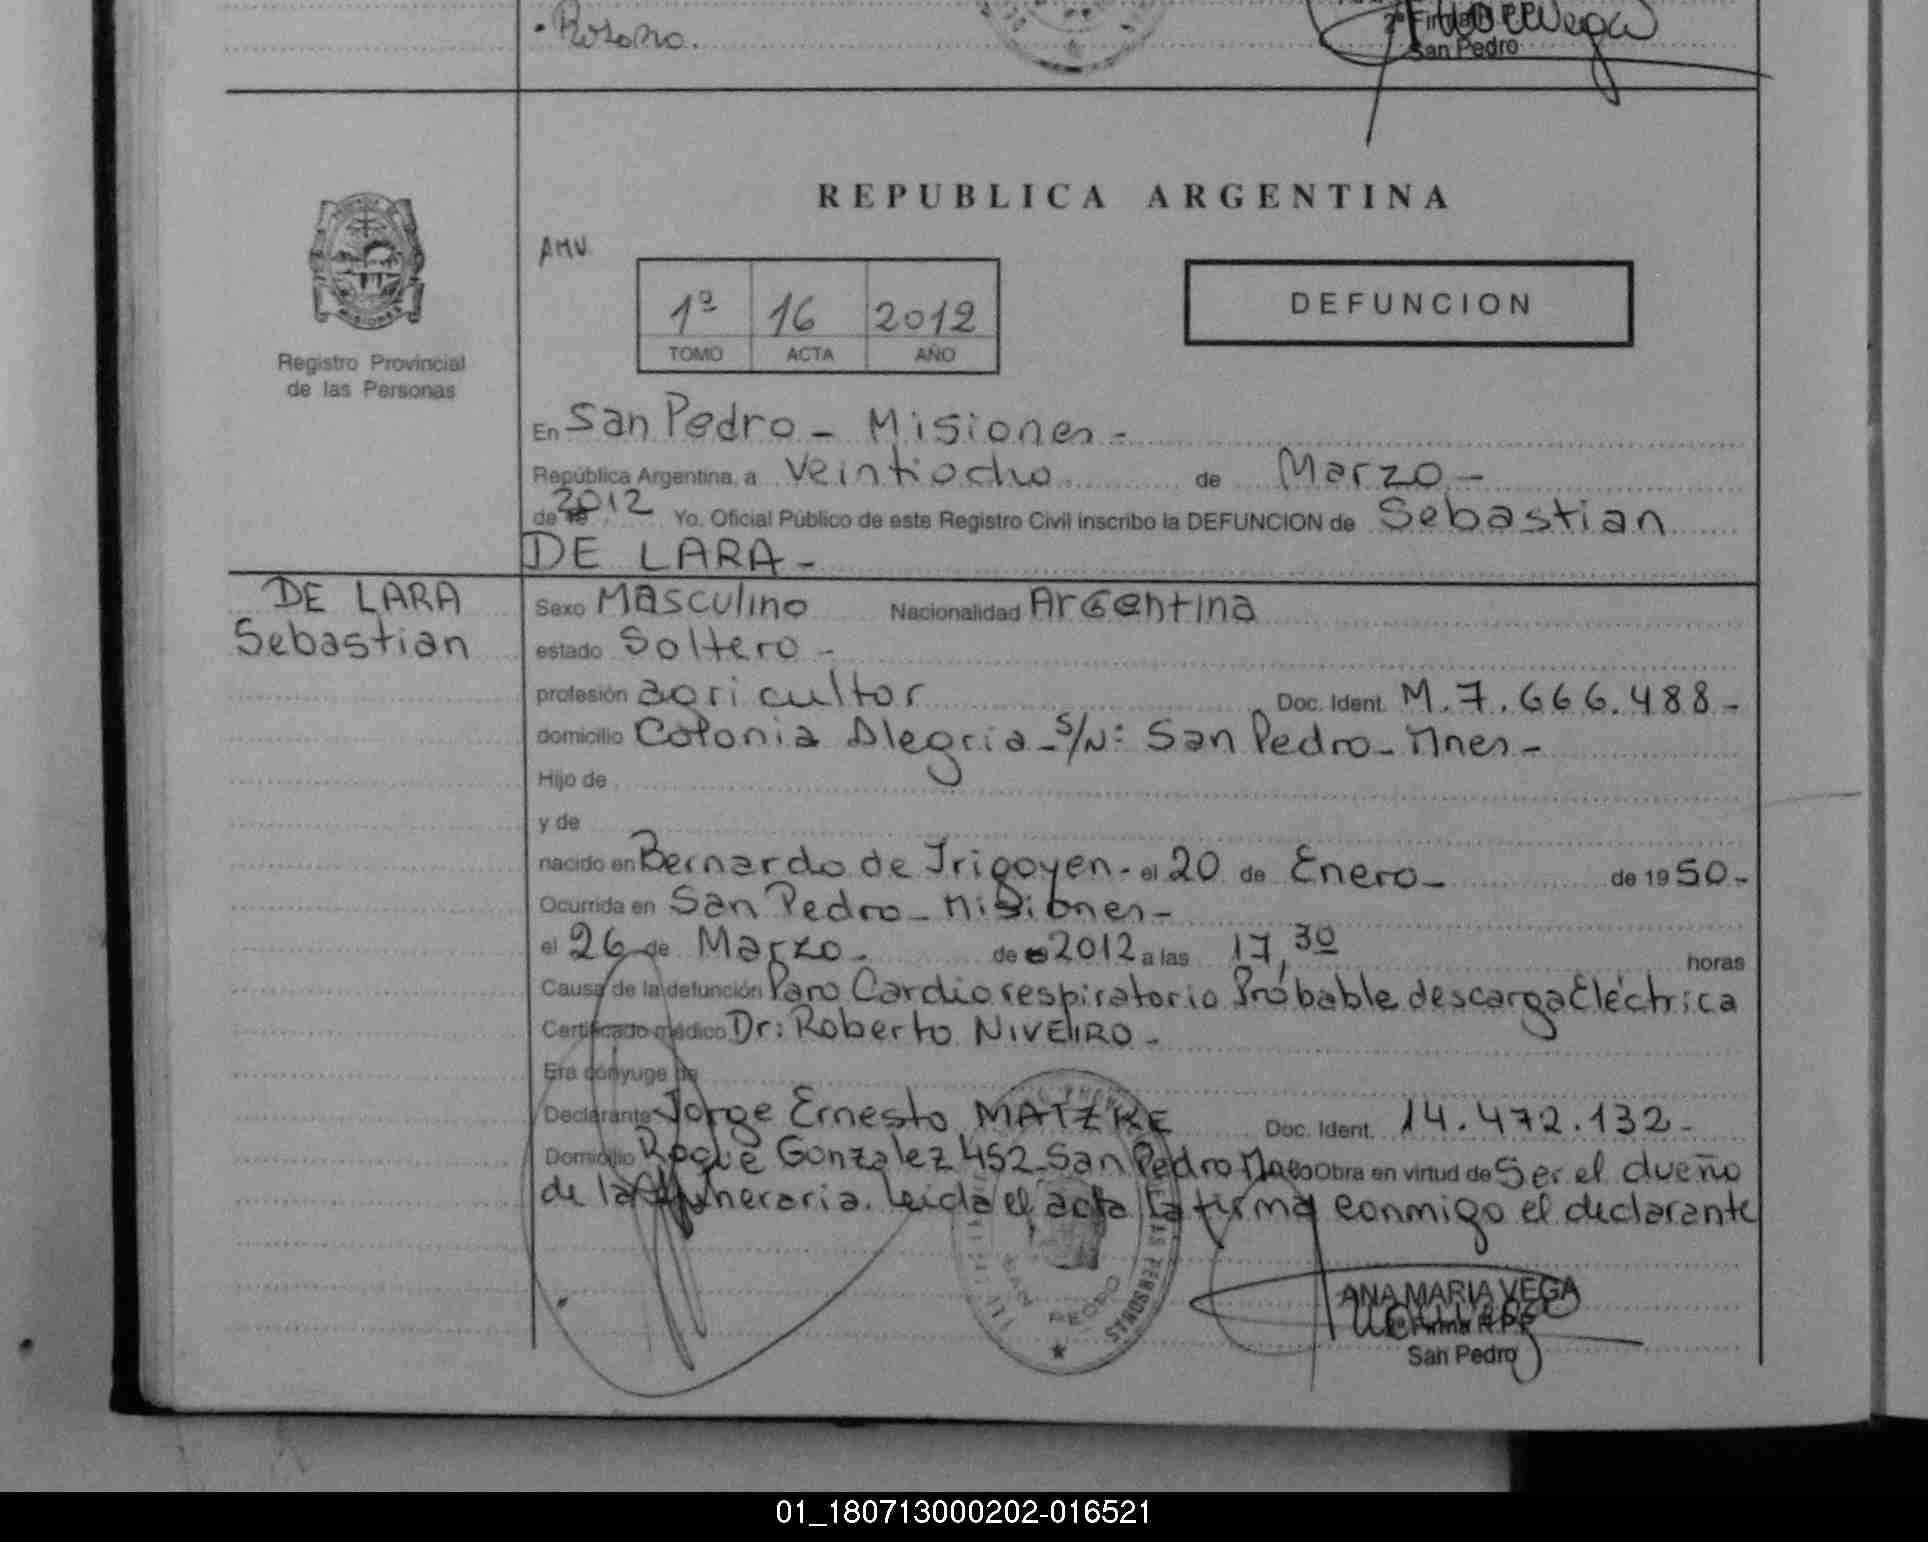 • Rosono.
2º Firma
San Pedro
REPUBLICA ARGENTINA
AMV.
1º 16 2012
TOMO ACTA AÑO
DEFUNCION
MISIONES
Registro Provincial
de las Personas
En San Pedro - Misiones -
República Argentina, a veintiocho de Marzo -
de 2012 Yo. Oficial Público de este Registro Civil inscribo la DEFUNCION de Sebastian
DE LARA -
DE LARA
Sebastian
Sexo Masculino Nacionalidad Argentina
estado Soltero -
profesión agricultor Doc. Ident. M. 7.666.488 -
domicilio Colonia Alegria - S/N: San Pedro - Mnes -
Hijo de
y de
nacido en Bernardo de Irigoyen - el 20 de Enero - de 1950 -
Ocurrida en San Pedro - Misiones -
el 26 de Marzo - de 2012 a las 17,30 horas
Causa de la defunción Paro Cardio respiratorio Probable descarga Eléctrica
Certificado médico Dr: Roberto NIVEIRO -
Era cónyuge de
Declarante Jorge Ernesto MATZKE Doc. Ident. 14.472.132 -
Domicilio Roque Gonzalez 452 San Pedro Mnes Obra en virtud de Ser el dueño
de la funeraria. Leida el acta la firma conmigo el declarante
LAS PERSONAS
SAN PEDRO
ANA MARIA VEGA
Firma R.P.P
San Pedro
01_180713000202-016521